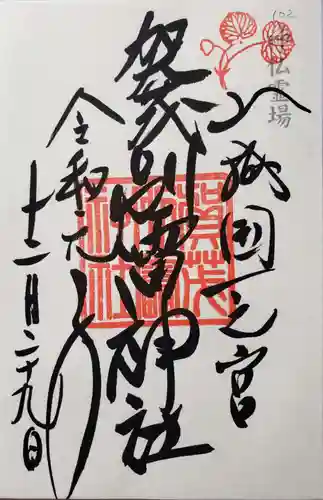 102
神仏霊場
山城国一之宮
賀茂別雷神社
令和元年
十二月二十九日
賀茂
別雷
神社